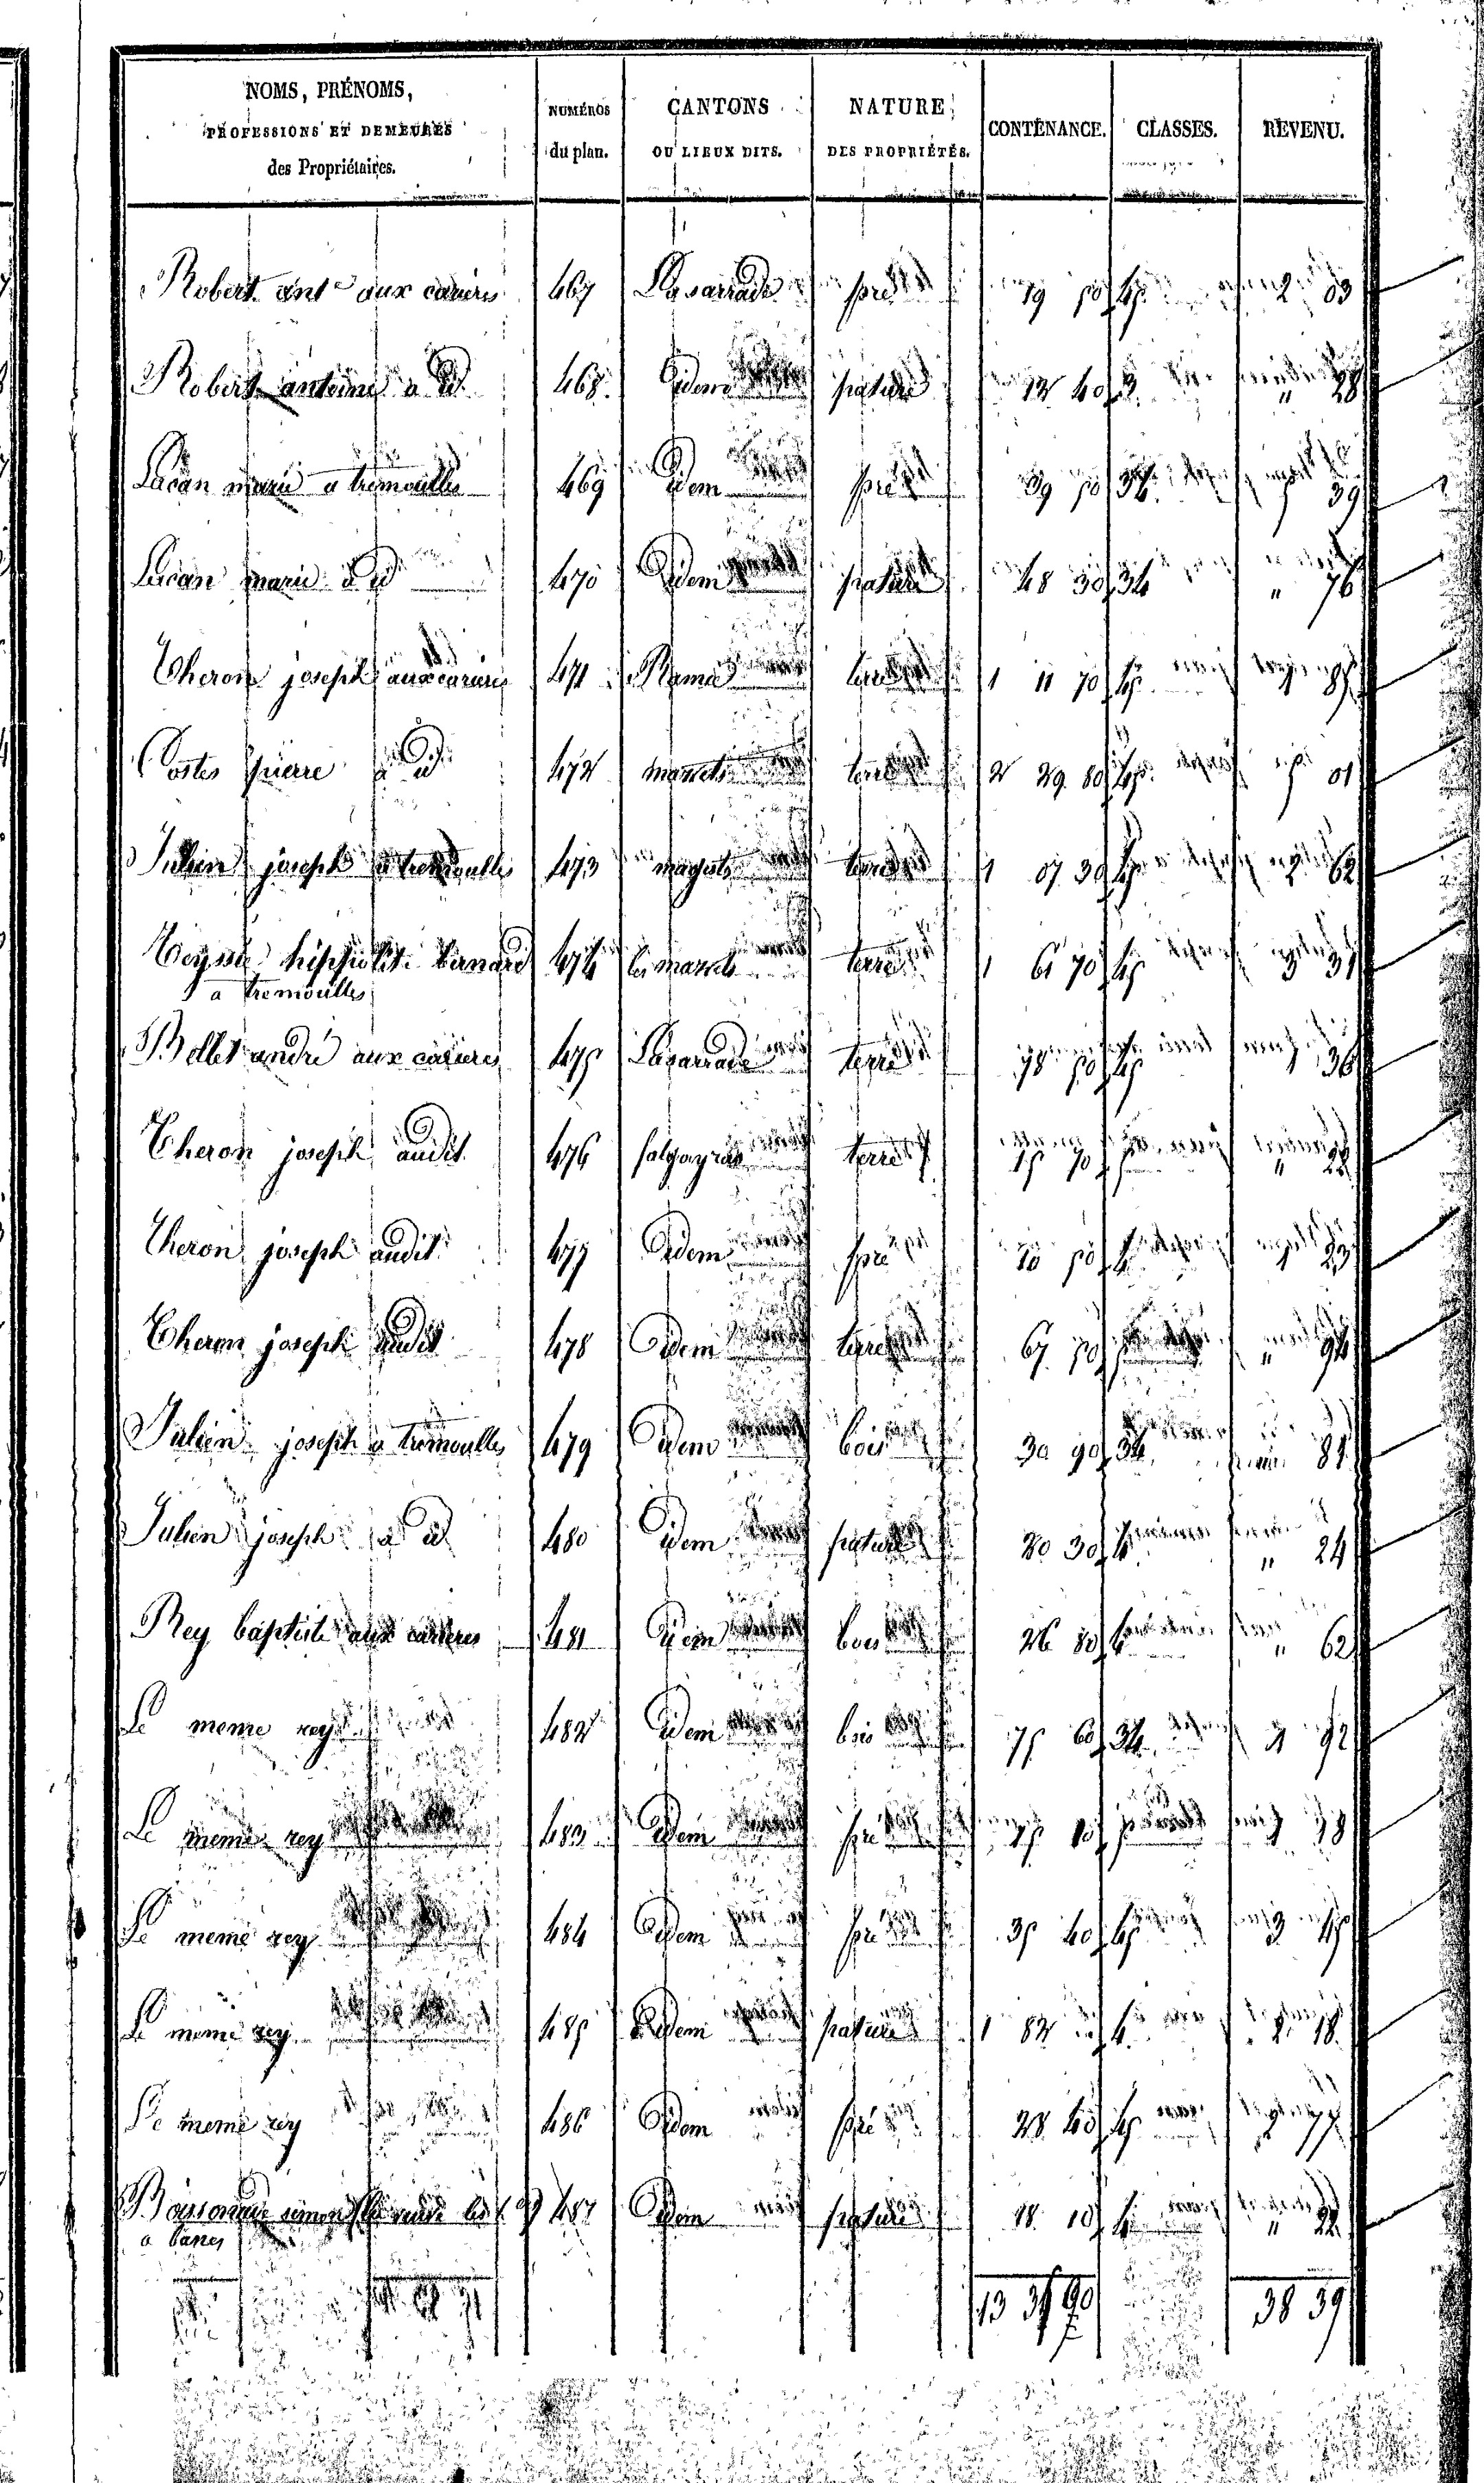 NOMS, PRÉNOMS, PROFESSIONS ET DEMEURES des Propriétaires. NUMÉROS du plan. CANTONS OU LIEUX DITS. NATURE DES PROPRIÉTÉS. CONTENANCE. CLASSES. REVENU.
Robert ant^e aux carieres 467 La sarrade pré 19 50 45 2 03
Robert antoine a id 468 idem pature 12 40 3 " 28
Lacan marie a tremoulles 469 idem pré 39 50 34 5 39
Lacan marie a id 470 idem pature 48 30 34 " 76
Theron joseph aux carieres 471 Ramie terre 1 11 70 45 1 85
Costes pierre a id 472 mazets terre 2 29 80 45 5 01
Julien joseph a tremoulles 473 terre 1 07 30 45 2 62
hippolite bernard 474 les mazets terre 1 61 70 45 3 31
a tremoulles
andré aux carieres 475 Lasarrade terre 78 50 45 1 36
Theron joseph audit 476 salgayras terre 15 70 5 " 22
Theron joseph audit 477 idem pré 10 50 4 1 23
Theron joseph audit 478 idem terre 67 50 5 " 94
Julien joseph a tremoulles 479 idem bois 30 90 34 81
Julien joseph a id 480 idem pature 20 30 4 " 24
Rey baptiste aux carieres 481 idem bois 26 80 4 " 62
Le meme rey 482 idem bois 75 60 34 1 92
Le meme rey 483 idem pré 15 10 5 98
Le meme rey 484 idem pré 35 40 45 3 45
Le meme rey 485 idem pature 1 82 4 2 18
Le meme rey 486 idem pré 28 40 45 2 77
simon 487 idem pature 18 10 4 " 22
a
13 35 90 38 39